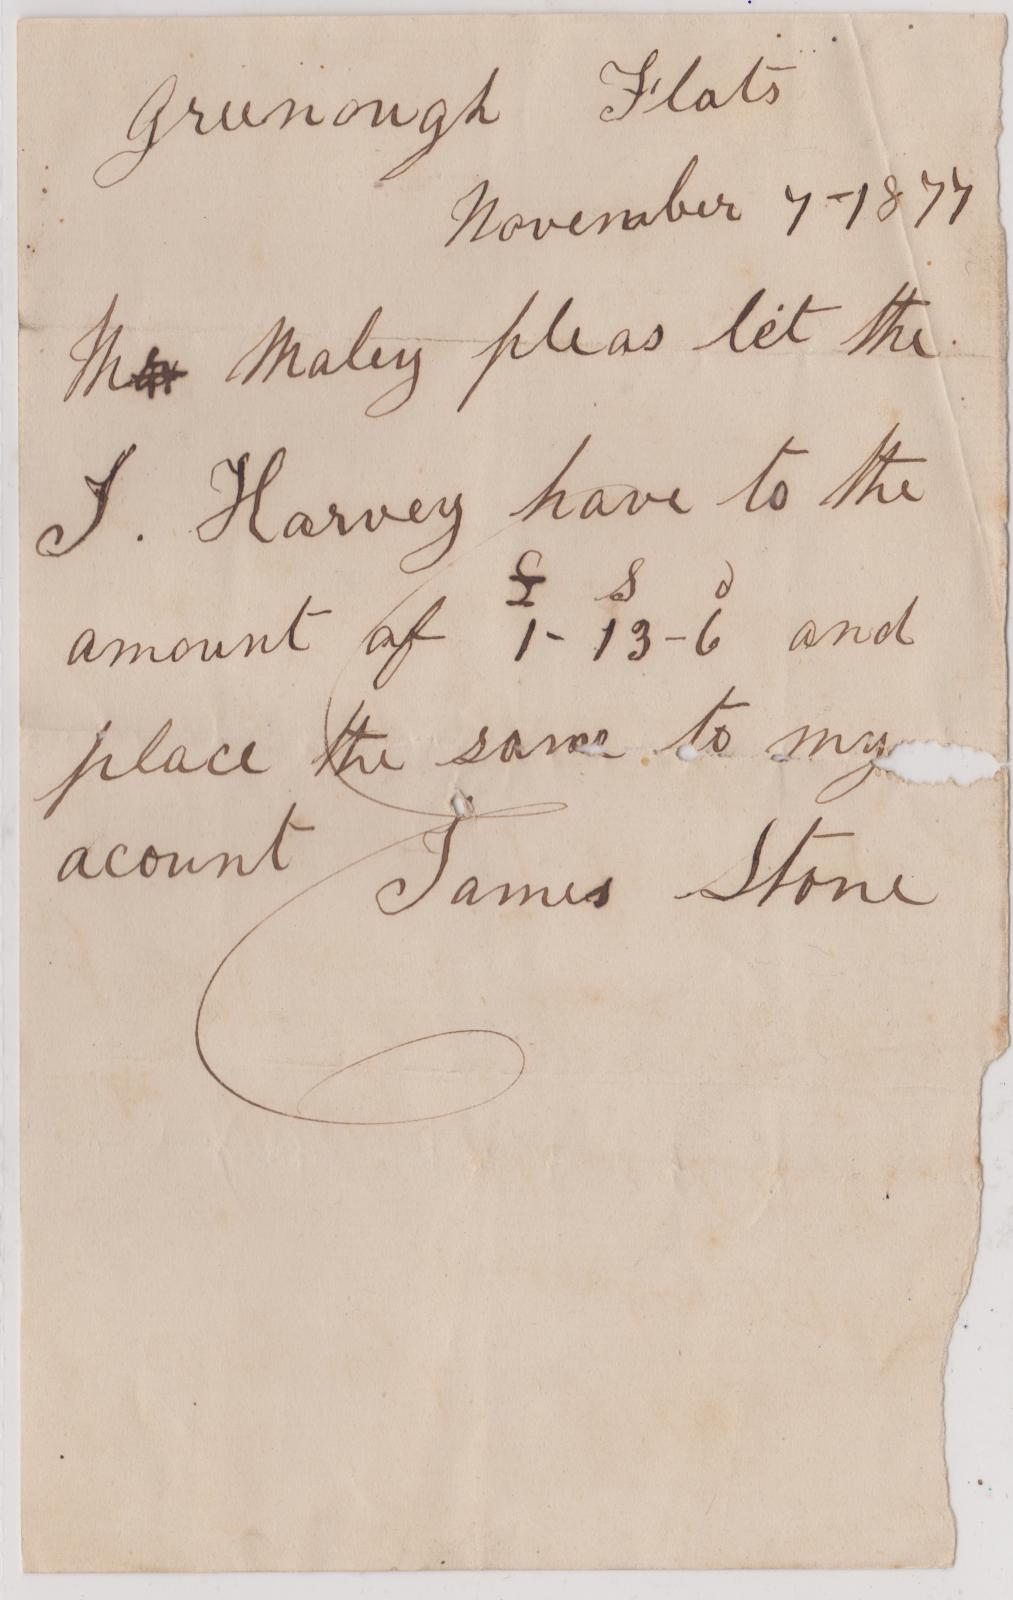 Greenough Flats
November 7-1877
Mr Maley pleas let the
J. Harvey have to the
£ S d
amount of 1-13-6 and
place the same to my
acount James Stone